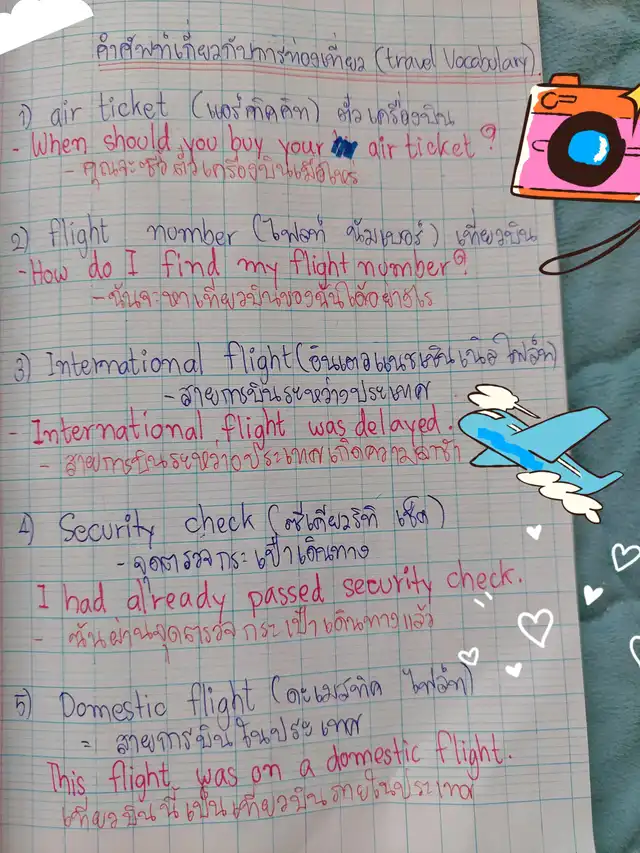 คำศัพท์เกี่ยวกับการท่องเที่ยว (travel Vocabulary)
1) air ticket (แอร์ทิคคิท) ตั๋วเครื่องบิน
- When should you buy your air ticket?
- คุณจะซื้อตั๋วเครื่องบินเมื่อไหร่
2) flight number (ไฟลท์ นัมเบอร์) เที่ยวบิน
- How do I find my flight number?
- ฉันจะหาเที่ยวบินของฉันได้อย่างไร
3) International flight (อินเตอแนชเชินเนิล ไฟล์ท)
- สายการบินระหว่างประเทศ
- International flight was delayed.
- สายการบินระหว่างประเทศเกิดความล่าช้า
4) Security check (ซีเคียวริทิ เช็ค)
- จุดตรวจกระเป๋าเดินทาง
I had already passed security check.
- ฉันผ่านจุดตรวจกระเป๋าเดินทางแล้ว
5) Domestic flight (ดะเมสทิค ไฟล์ท)
= สายการบินในประเทศ
This flight was on a domestic flight.
เที่ยวบินนี้เป็นเที่ยวบินภายในประเทศ